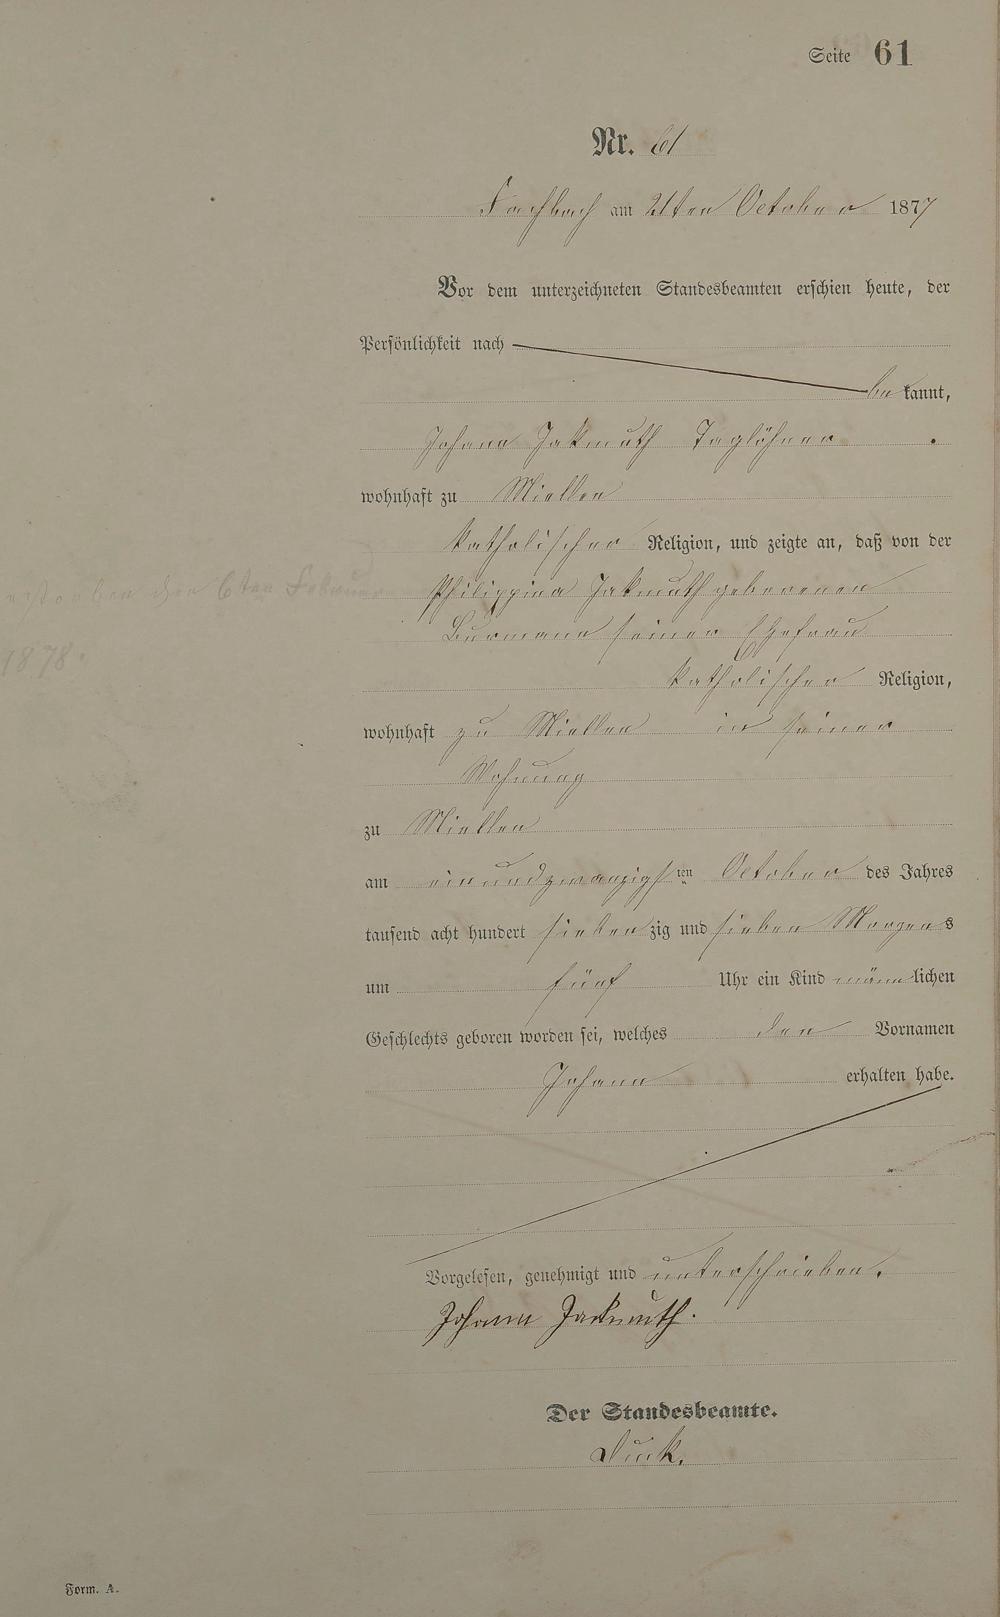 Seite 61
Nr. 61
Fachbach am 21ten October 1877
Vor dem unterzeichneten Standesbeamten erschien heute, der
Persönlichkeit nach
be kannt,
Johann Jakmuth Taglöhner
wohnhaft zu Miellen
katholischer Religion, und zeigte an, daß von der
Philippina Jakmuth geborenen
Burmann seiner Ehefrau
katholischer Religion,
wohnhaft zu Miellen in seiner
Wohnung
zu Miellen
am einundzwanzigsten October des Jahres
tausend acht hundert siebenzig und sieben Morgens
um fünf Uhr ein Kind männlichen
Geschlechts geboren worden sei, welches den Vornamen
Johann erhalten habe.
Vorgelesen, genehmigt und unterschrieben.
Johann Jackmuth.
Der Standesbeamte.
den 6ten Februar
1878.
Form. A.